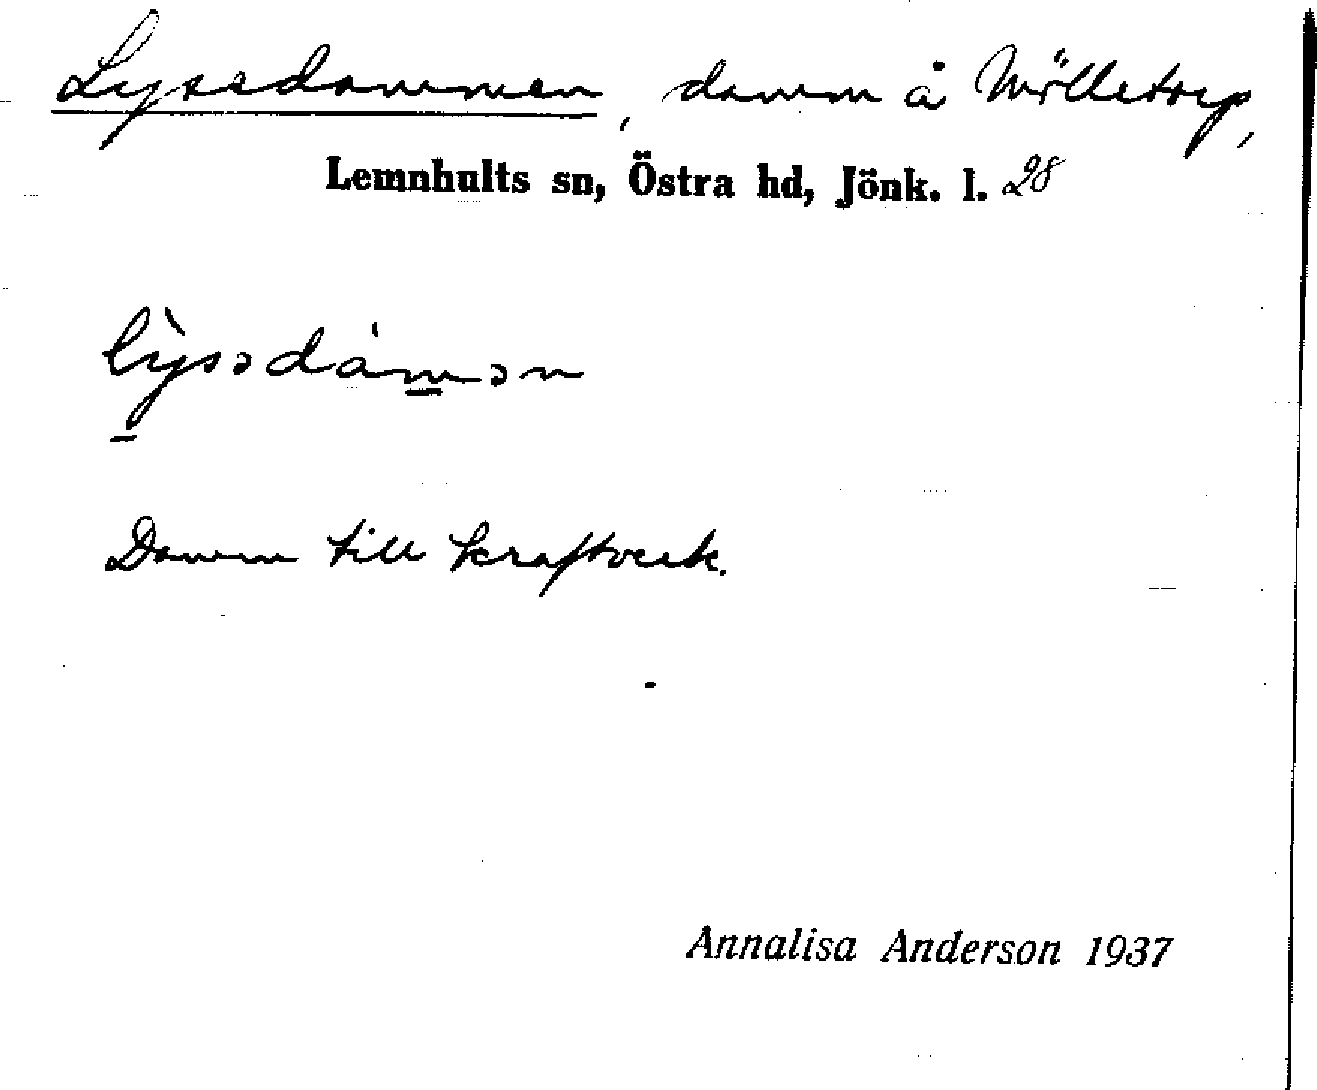 Lyssdammen, damm å Mölletorp,
Lemnhults sn, Östra hd, Jönk. l. 28
Damm till kraftverk.
Annalisa Anderson 1937